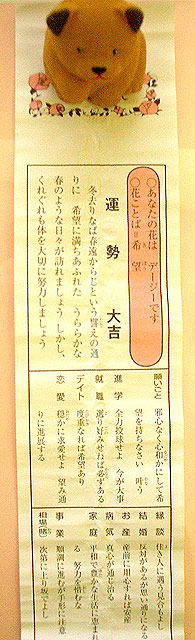 ○あなたの花は デージーです
○花ことば=希望
運勢 大吉
冬去りなば春遠からじという譬えの通
りに 希望に満ちあふれた うららかな
春のような日々が訪れましょう しかし、
くれぐれも体を大切に努力しましょう
願いごと 邪心なく心和かにして希
望を持ちなさい 叶う
進学 全力投球せよ 今が大事
就職 選り好みせねば必ずある
デイト 度重なれば希望あり
恋愛 穏かに求愛せよ 望み通
りに進展する
縁談 佳き人に遇う見合もよし
結婚 反対があるが思い通りになる
お産 産前に用心すれば安産
病気 真心が通じ治る
家庭 平和で豊かな生活に恵まれ
る 努力を惜むな
事業 順調に進むが手形に注意
相場(賭) 次第に上り坂でよし